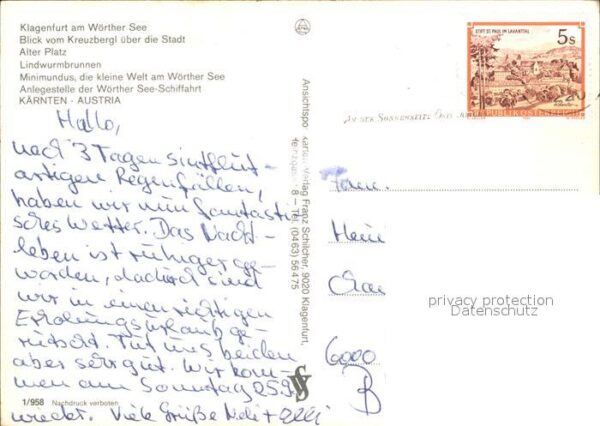 Klagenfurt am Wörther See
Blick vom Kreuzbergl über die Stadt
Alter Platz
Lindwurmbrunnen
Minimundus, die kleine Welt am Wörther See
Anlegestelle der Wörther See-Schiffahrt
KÄRNTEN · AUSTRIA
Hallo,
nach 3 Tagen sintflut-
artigen Regenfällen,
haben wir nun fantasti
sches Wetter. Das Nacht-
leben ist ruhiger ge-
worden, dadurch sind
wir in einen richtigen
Erholungsurlaub ge-
rutscht. Tut uns beiden
aber sehr gut. Wir kom-
men am Sonntag 25.9.
wieder. Viele Grüße +
1/958 Nachdruck verboten
Verlag Franz Schilcher, 9020 Klagenfurt,
8 – Tel. (0463) 56475
STIFT ST. PAUL IM LAVANTTAL
5s
REPUBLIK ÖSTERREICH
AN DER SONNENSEITE
Fam.
6000
privacy protection
Datenschutz